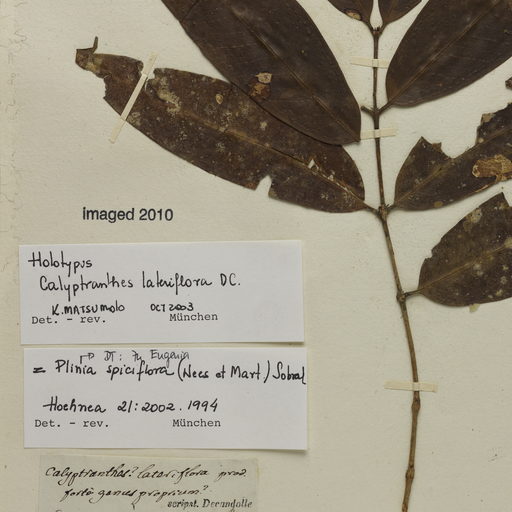 imaged 2010
Holotypus
Calyptranthes lateriflora DC.
K. MATSUMOTO OCT 2003
Det. - rev. München
Eugenia
= Plinia spiciflora (Nees et Mart.) Sobral
Hoehnea 21: 2002. 1994
Det. - rev. München
Calyptranthes? lateriflora prod.
forte genus proprium?
scripst. Decandolle